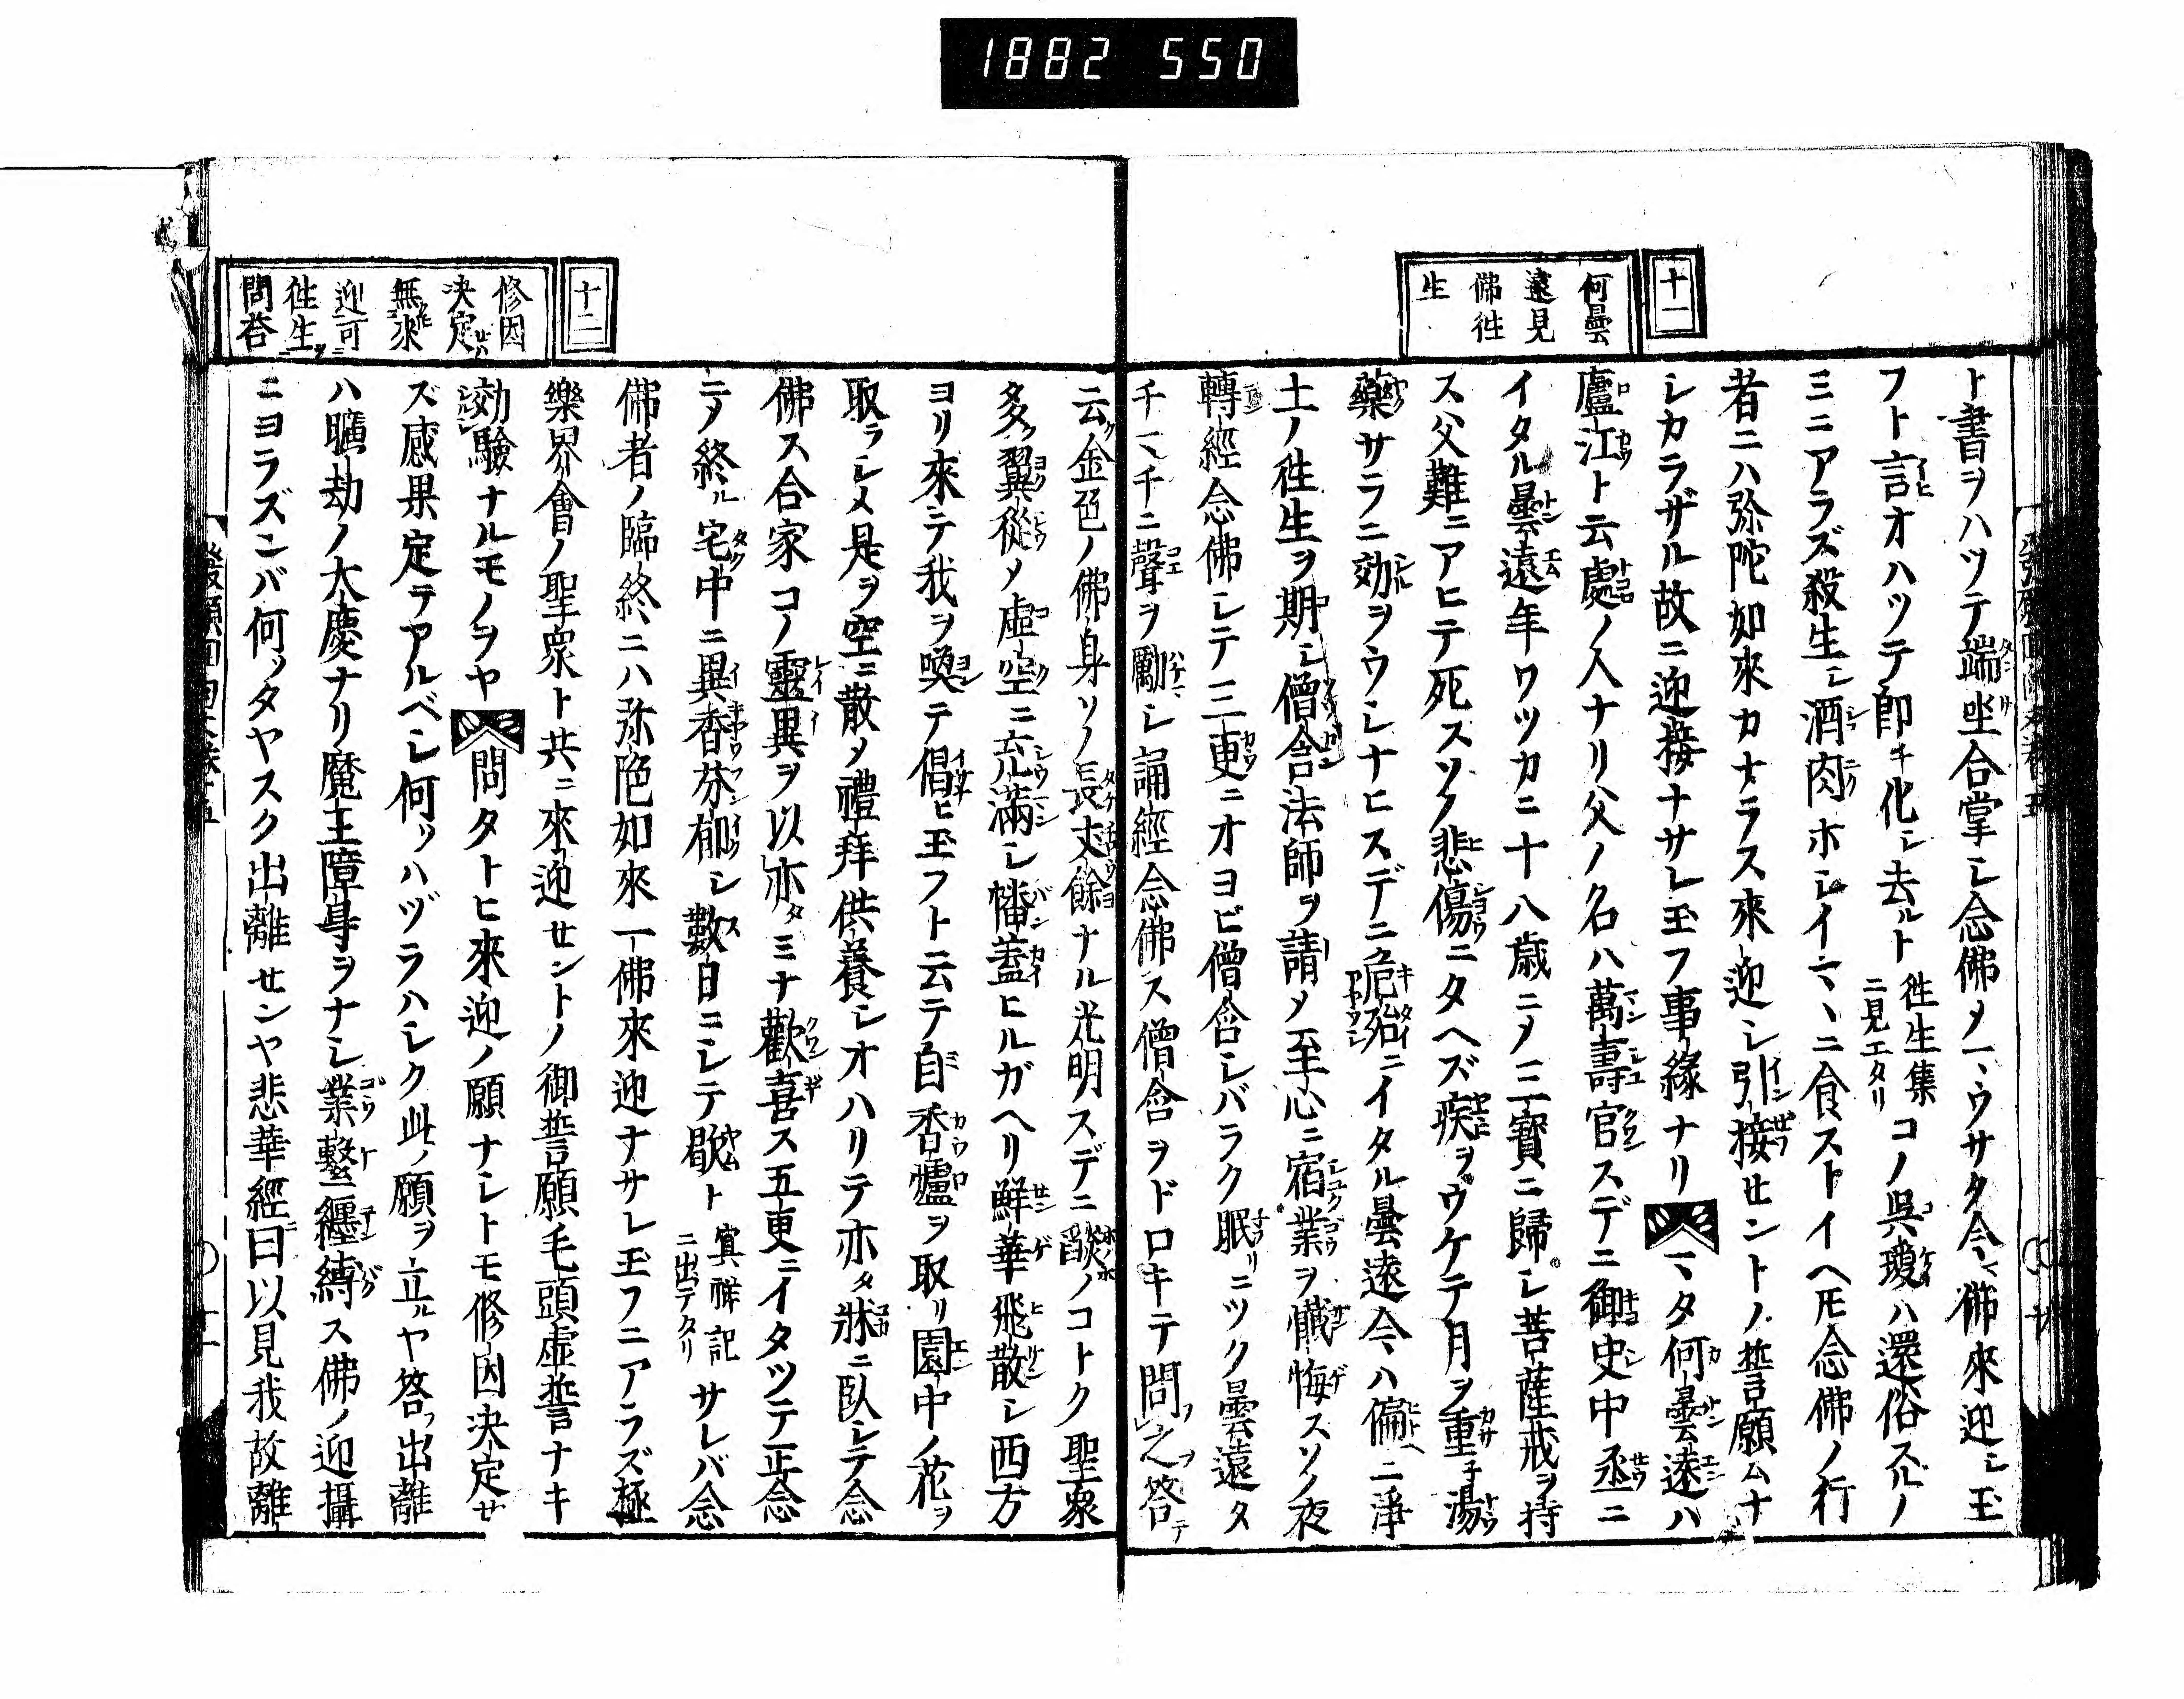 1882 550
十一
何曇
遠見
佛徃
生
ト書ヲハツテ端坐合掌シ念佛メ一、ウサタ今マ佛來迎シ玉
フト言オハツテ即チ化シ去ルト 徃生集ニ見エタリ コノ呉瓊ハ還俗スルノ
ミニアラズ殺生シ酒肉ホシイマヽニ食ストイヘ𪜈念佛ノ行
者ニハ弥陀如來カナラス來迎シ引接セントノ誓願ムナ
シカラザル故ニ迎接ナサレ玉フ事緣ナリ マタ何曇遠ハ
廬江ト云處ノ人ナリ父ノ名ハ萬壽官スデニ御史中丞ニ
イタル曇遠年ワツカニ十八歳ニメ三寶ニ歸シ菩薩戒ヲ持
ス父難ニアヒテ死スソノ悲傷ニタヘズ疾ヲウケテ月ヲ重子湯
藥サラニ効ヲウシナヒスデニ危殆ニイタル曇遠今ハ偏ニ淨
土ノ徃生ヲ期シ僧含法師ヲ請メ至心ニ宿業ヲ懺悔スソノ夜
轉經念佛シテ三更ニオヨビ僧含シバラク眠リニツク曇遠タ
チマチニ聲ヲ勵シ誦經念佛ス僧含ヲドロキテ問フ之ヲ答テ
云ク金色ノ佛身ソノ長丈餘ナル光明スデニ燄ノコトク聖衆
多ク翼從メ虛空ニ充滿シ幡蓋ヒルガヘリ鮮華飛散シ西方
ヨリ來テ我ヲ喚テ倡ヒ玉フト云テ自香爐ヲ取リ園中ノ花ヲ
取ラシメ是ヲ空ニ散メ禮拜供養シオハリテ亦タ牀ニ臥シテ念
佛ス合家コノ靈異ヲ以亦タミナ歡喜ス五更ニイタツテ正念
ニメ終ル宅中ニ異香芬郁シ數日ニシテ歇ト 冥祥記ニ出テタリ サレバ念
佛者ノ臨終ニハ弥陀如來一佛來迎ナサレ玉フニアラズ極
樂界會ノ聖衆ト共ニ來迎セントノ御誓願毛頭虛誓ナキ
効驗ナルモノヲヤ 問タトヒ來迎ノ願ナシトモ修因決定セ
ズ感果定テアルベシ何ソハヅラハシク此ノ願ヲ立ルヤ答フ出離
ハ曠劫ノ大慶ナリ魔王障㝵ヲナシ業繫纒縛ス佛ノ迎攝
ニヨラズンバ何ソタヤスク出離センヤ悲華經ニ曰以見我故離
十二
修因
決定セハ
無來
迎可
徃生
問答